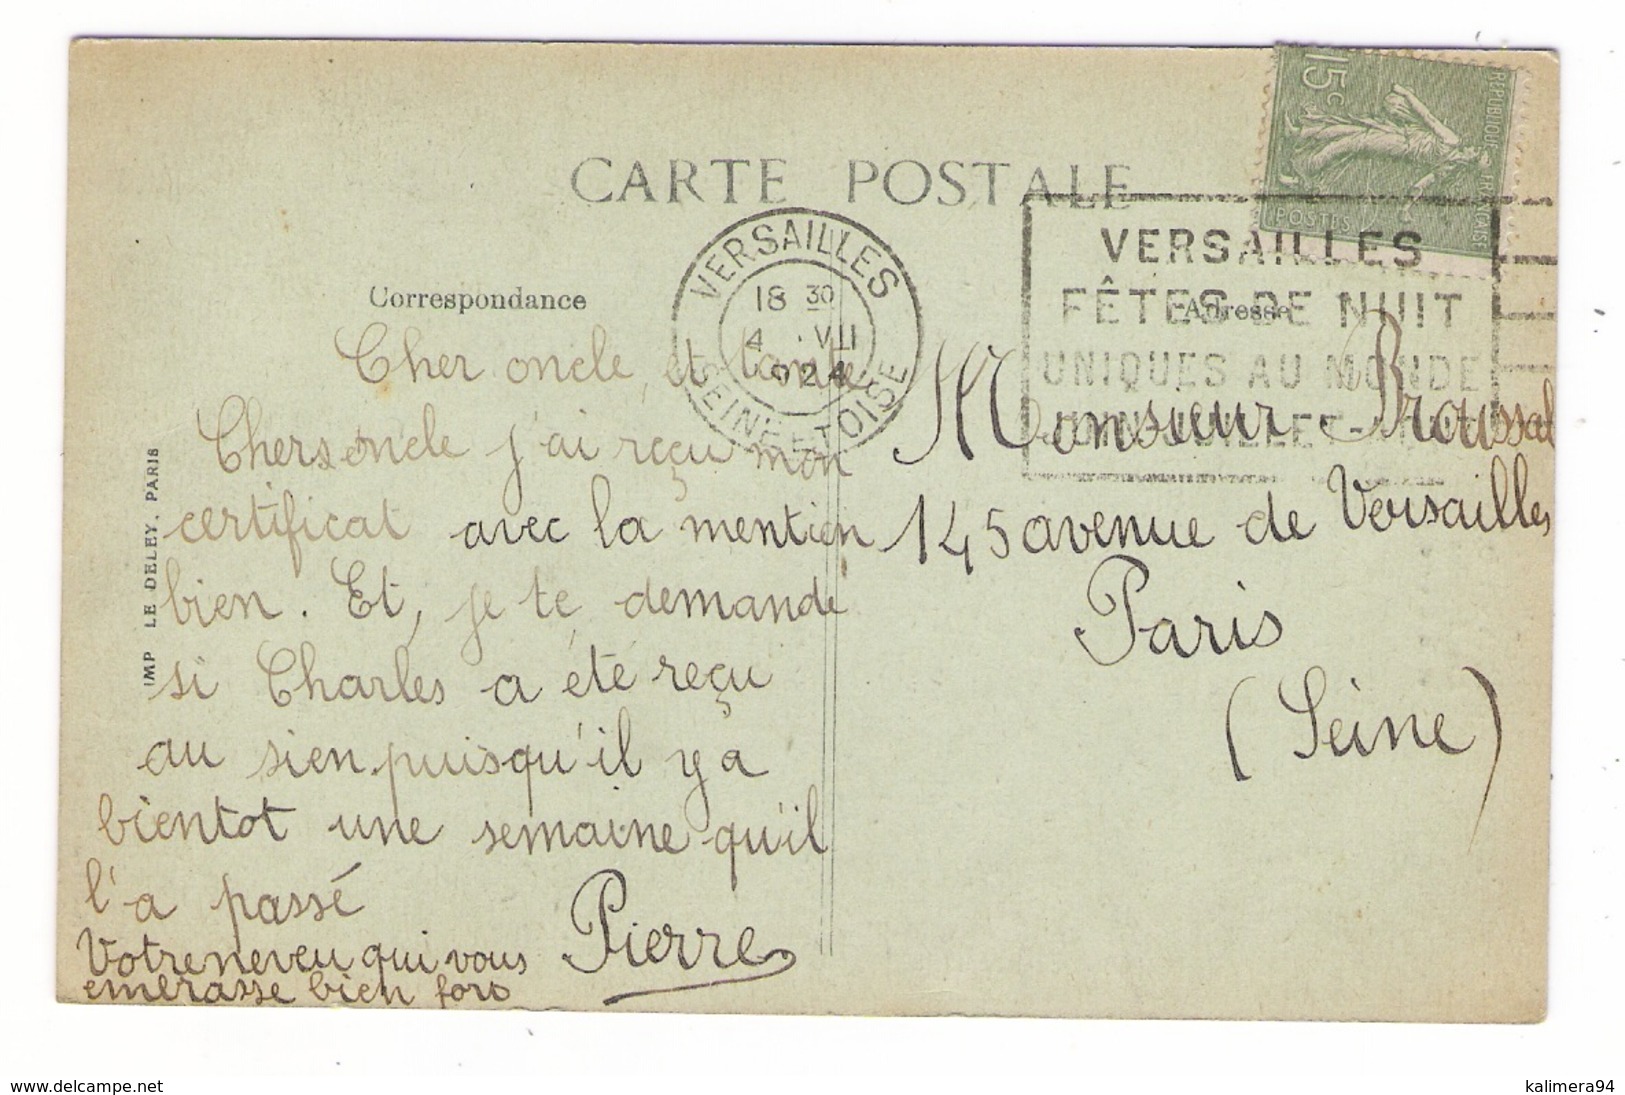 CARTE POSTALE
15c
REPUBLIQUE FRANÇAISE
POSTES
VERSAILLES
18 30
4 · VII
924
SEINE-ET-OISE
VERSAILLES
FÊTES DE NUIT
UNIQUES AU MONDE
Correspondance
Adresse
Cher oncle, et tante
Chers oncle j'ai reçu mon
certificat avec la mention
bien. Et, je te demande
si Charles a été reçu
au sien puisqu'il y a
bientot une semaine qu'il
l'a passé
Votre neveu qui vous
emerasse bien fors
Pierre
Monsieur Broussal
145 avenue de Versailles
Paris
(Seine)
IMP LE DELEY, PARIS
www.delcampe.net
kalimera94